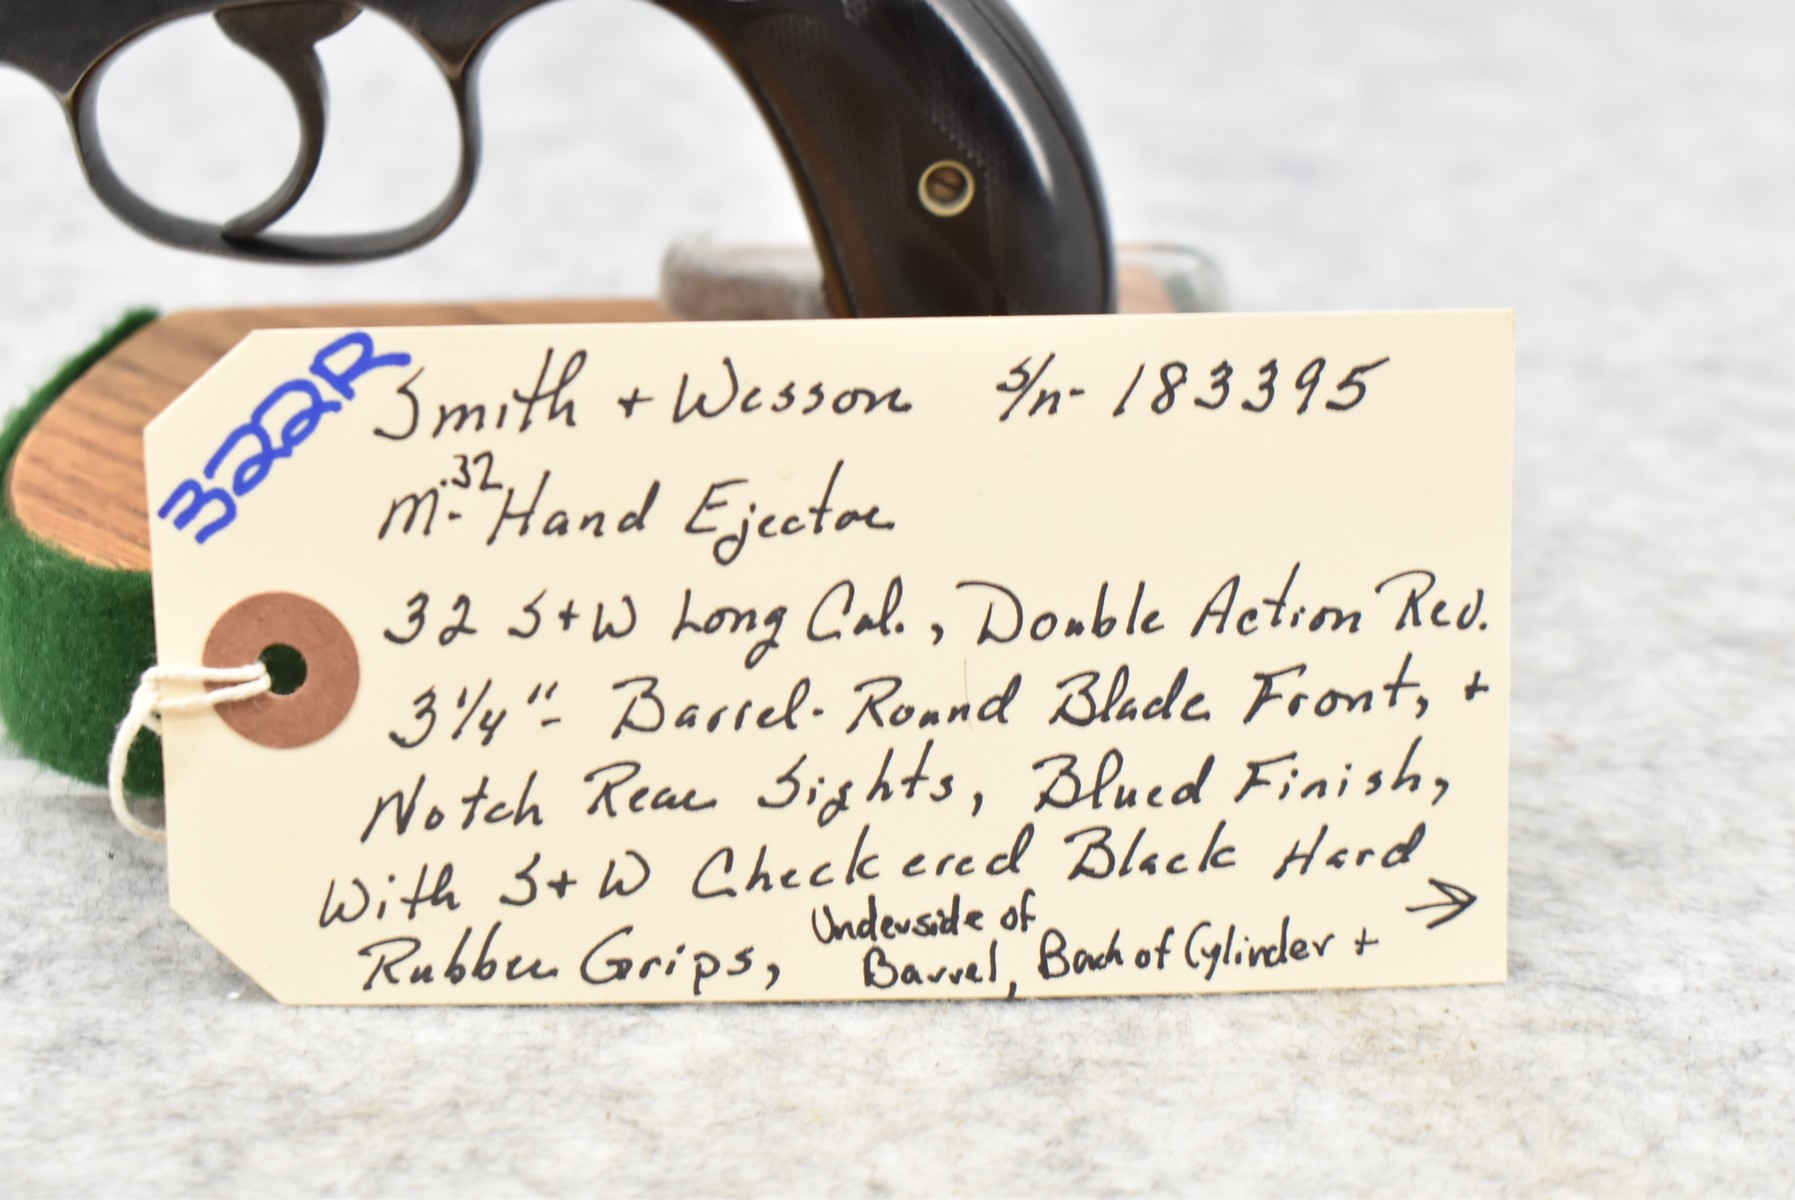 322R
Smith + Wesson S/n- 183395
M-.32 Hand Ejector
32 S+W Long Cal., Double Action Rev.
3 1/4"- Barrel- Round Blade Front, +
Notch Rear Sights, Blued Finish,
With S+W Checkered Black Hard
Rubber Grips, Underside of
Barrel, Back of Cylinder + →